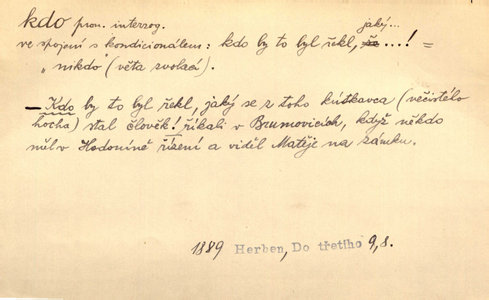 kdo pron. interrog.
jaký...
ve spojení s kondicionálem: kdo by to byl řekl, že...! =
„nikdo (věta zvolací).
— Kdo by to byl řekl, jaký se z toho kústkavca (večistého
hocha) stal člověk! říkali v Brumovicích, když někdo
měl v Hodoníně řízení a viděl Matěje na zámku.
1889 Herben, Do třetího 9,8.